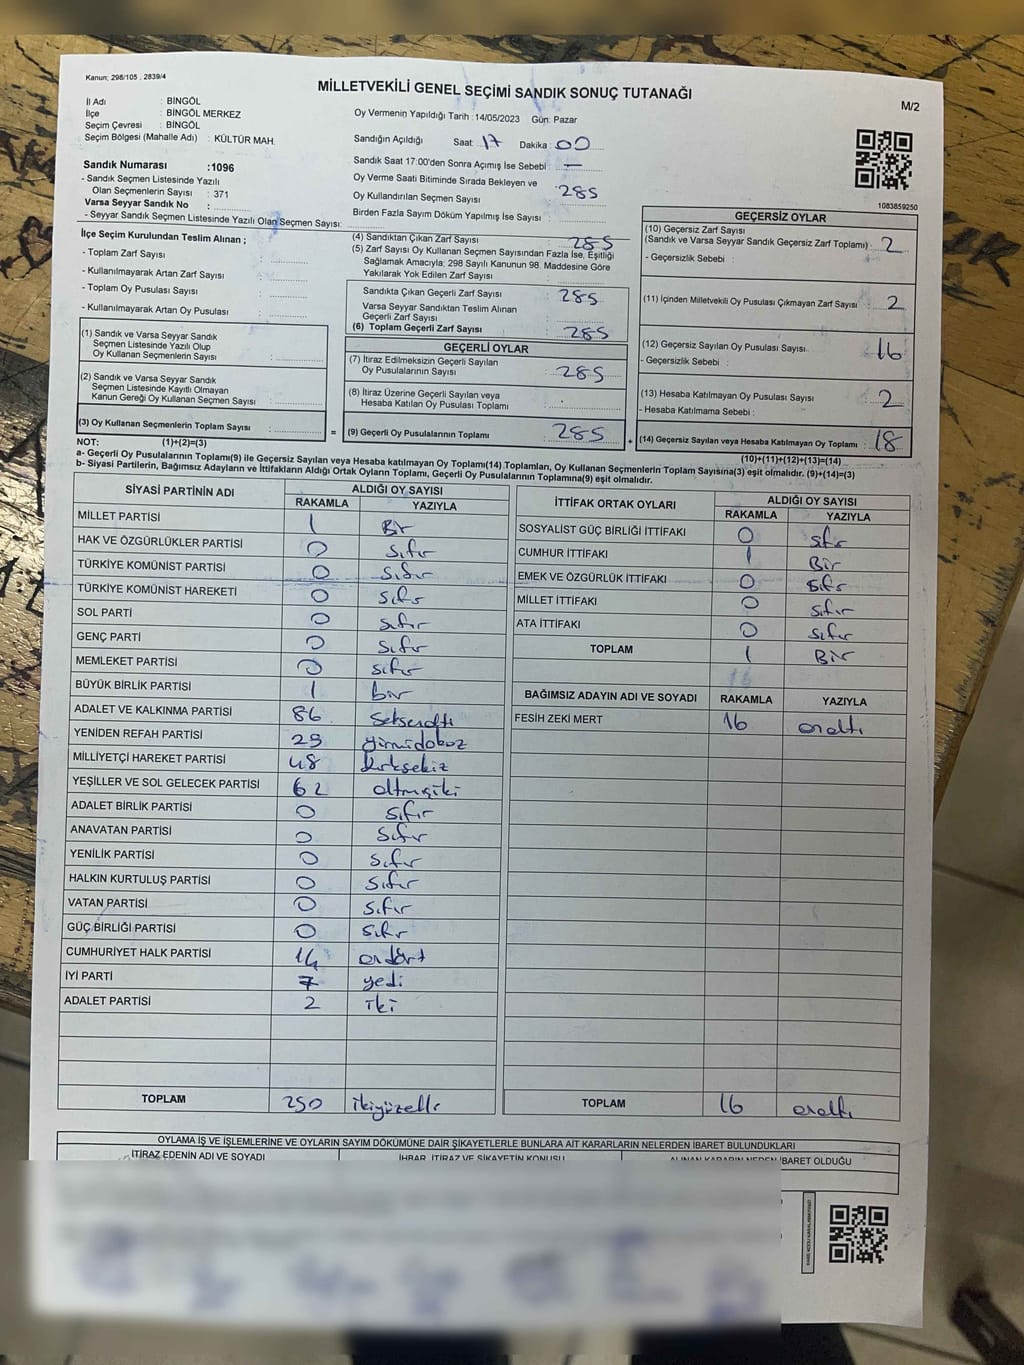 Kanun; 298/105 , 2839/4
MİLLETVEKİLİ GENEL SEÇİMİ SANDIK SONUÇ TUTANAĞI
M/2
İl Adı : BİNGÖL
İlçe : BİNGÖL MERKEZ
Seçim Çevresi : BİNGÖL
Seçim Bölgesi (Mahalle Adı) : KÜLTÜR MAH.
Sandık Numarası :1096
- Sandık Seçmen Listesinde Yazılı
Olan Seçmenlerin Sayısı : 371
Varsa Seyyar Sandık No :
- Seyyar Sandık Seçmen Listesinde Yazılı Olan Seçmen Sayısı:
Oy Vermenin Yapıldığı Tarih :14/05/2023 Gün: Pazar
Sandığın Açıldığı Saat: 17 Dakika: 00
Sandık Saat 17:00'den Sonra Açımış İse Sebebi : —
Oy Verme Saati Bitiminde Sırada Bekleyen ve
Oy Kullandırılan Seçmen Sayısı : 285
Birden Fazla Sayım Döküm Yapılmış İse Sayısı :
1083859250
İlçe Seçim Kurulundan Teslim Alınan ;
- Toplam Zarf Sayısı :
- Kullanılmayarak Artan Zarf Sayısı :
- Toplam Oy Pusulası Sayısı :
- Kullanılmayarak Artan Oy Pusulası :
(1) Sandık ve Varsa Seyyar Sandık
Seçmen Listesinde Yazılı Olup
Oy Kullanan Seçmenlerin Sayısı :
(2) Sandık ve Varsa Seyyar Sandık
Seçmen Listesinde Kayıtlı Olmayan
Kanun Gereği Oy Kullanan Seçmen Sayısı :
(3) Oy Kullanan Seçmenlerin Toplam Sayısı :
(4) Sandıktan Çıkan Zarf Sayısı : 285
(5) Zarf Sayısı Oy Kullanan Seçmen Sayısından Fazla İse, Eşitliği
Sağlamak Amacıyla; 298 Sayılı Kanunun 98. Maddesine Göre
Yakılarak Yok Edilen Zarf Sayısı :
Sandıkta Çıkan Geçerli Zarf Sayısı : 285
Varsa Seyyar Sandıktan Teslim Alınan
Geçerli Zarf Sayısı :
(6) Toplam Geçerli Zarf Sayısı : 285
GEÇERLİ OYLAR
(7) İtiraz Edilmeksizin Geçerli Sayılan
Oy Pusulalarının Sayısı : 285
(8) İtiraz Üzerine Geçerli Sayılan veya
Hesaba Katılan Oy Pusulası Toplamı :
= (9) Geçerli Oy Pusulalarının Toplamı : 285 +
GEÇERSİZ OYLAR
(10) Geçersiz Zarf Sayısı
(Sandık ve Varsa Seyyar Sandık Geçersiz Zarf Toplamı) : 2
- Geçersizlik Sebebi :
(11) İçinden Milletvekili Oy Pusulası Çıkmayan Zarf Sayısı : 2
(12) Geçersiz Sayılan Oy Pusulası Sayısı : 16
- Geçersizlik Sebebi :
(13) Hesaba Katılmayan Oy Pusulası Sayısı : 2
- Hesaba Katılmama Sebebi :
(14) Geçersiz Sayılan veya Hesaba Katılmayan Oy Toplamı : 18
NOT: (1)+(2)=(3)
(10)+(11)+(12)+(13)=(14)
a- Geçerli Oy Pusulaları Toplamı(9) ile Geçersiz Sayılan veya Hesaba katılmayan Oy Toplamı(14) Toplamları, Oy Kullanan Seçmenlerin Toplam Sayısına(3) eşit olmalıdır. (9)+(14)=(3)
b- Siyasi Partilerin, Bağımsız Adayların ve İttifakların Aldığı Ortak Oyların Toplamı, Geçerli Oy Pusulalarının Toplamına(9) eşit olmalıdır.
SİYASİ PARTİNİN ADI ALDIĞI OY SAYISI
RAKAMLA YAZIYLA
MİLLET PARTİSİ 1 Bir
HAK VE ÖZGÜRLÜKLER PARTİSİ 0 sıfır
TÜRKİYE KOMÜNİST PARTİSİ 0 sıfır
TÜRKİYE KOMÜNİST HAREKETİ 0 sıfır
SOL PARTİ 0 sıfır
GENÇ PARTİ 0 sıfır
MEMLEKET PARTİSİ 0 sıfır
BÜYÜK BİRLİK PARTİSİ 1 bir
ADALET VE KALKINMA PARTİSİ 86 seksenaltı
YENİDEN REFAH PARTİSİ 29 yirmidokuz
MİLLİYETÇİ HAREKET PARTİSİ 48 kırksekiz
YEŞİLLER VE SOL GELECEK PARTİSİ 62 altmışiki
ADALET BİRLİK PARTİSİ 0 sıfır
ANAVATAN PARTİSİ 0 sıfır
YENİLİK PARTİSİ 0 sıfır
HALKIN KURTULUŞ PARTİSİ 0 sıfır
VATAN PARTİSİ 0 sıfır
GÜÇ BİRLİĞİ PARTİSİ 0 sıfır
CUMHURİYET HALK PARTİSİ 14 ondört
İYİ PARTİ 7 yedi
ADALET PARTİSİ 2 iki
TOPLAM 250 ikiyüzelli
İTTİFAK ORTAK OYLARI ALDIĞI OY SAYISI
RAKAMLA YAZIYLA
SOSYALİST GÜÇ BİRLİĞİ İTTİFAKI 0 sıfır
CUMHUR İTTİFAKI 1 Bir
EMEK VE ÖZGÜRLÜK İTTİFAKI 0 sıfır
MİLLET İTTİFAKI 0 sıfır
ATA İTTİFAKI 0 sıfır
TOPLAM 1 Bir
BAĞIMSIZ ADAYIN ADI VE SOYADI RAKAMLA YAZIYLA
FESİH ZEKİ MERT 16 onaltı
TOPLAM 16 onaltı
OYLAMA İŞ VE İŞLEMLERİNE VE OYLARIN SAYIM DÖKÜMÜNE DAİR ŞİKAYETLERLE BUNLARA AİT KARARLARIN NELERDEN İBARET BULUNDUKLARI
İTİRAZ EDENİN ADI VE SOYADI İHBAR, İTİRAZ VE ŞİKAYETİN KONUSU ALINAN KARARIN NEDEN İBARET OLDUĞU